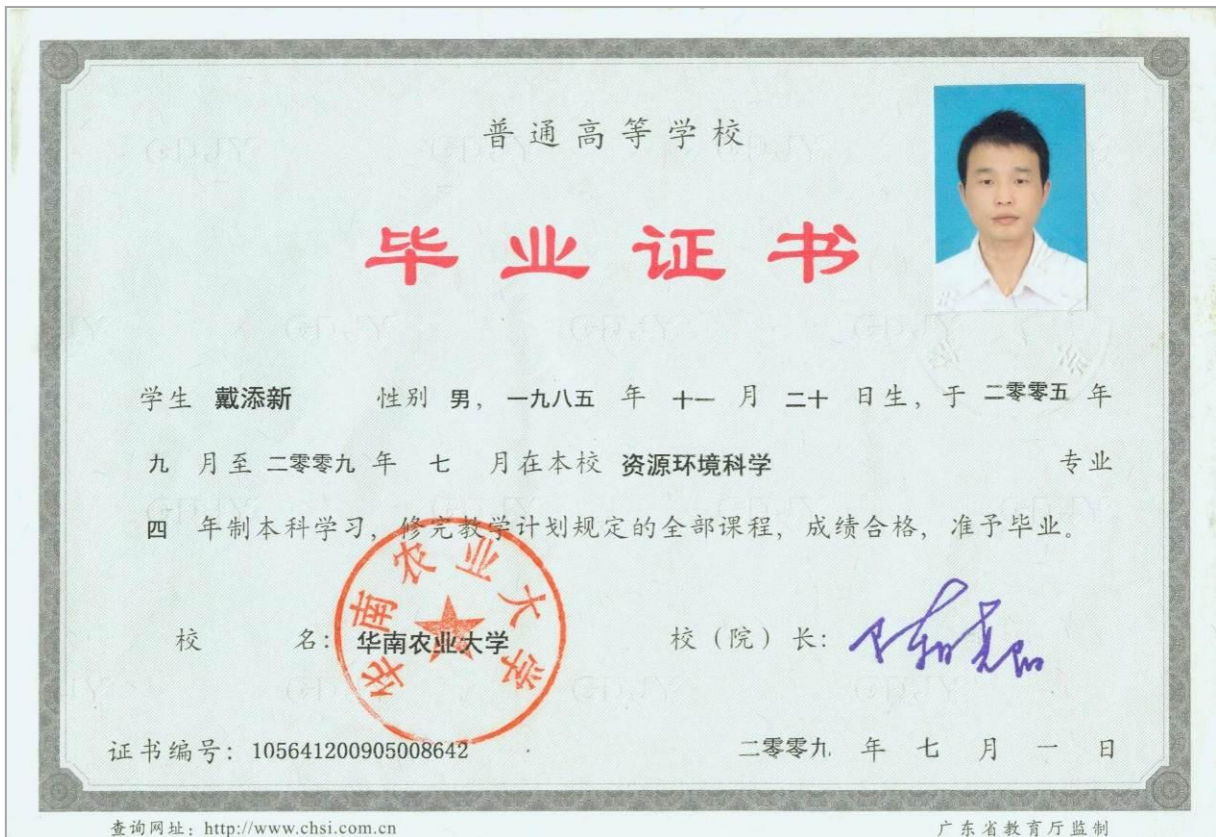 普通高等学校
毕业证书
学生 戴添新 性别 男，一九八五 年 十一 月 二十 日生，于 二零零五 年
九 月至 二零零九 年 七 月在本校 资源环境科学 专业
四 年制本科学习，修完教学计划规定的全部课程，成绩合格，准予毕业。
校 名：华南农业大学 校（院）长：
华南农业大学
证书编号：105641200905008642 二零零九 年 七 月 一 日
查询网址：http://www.chsi.com.cn 广东省教育厅监制